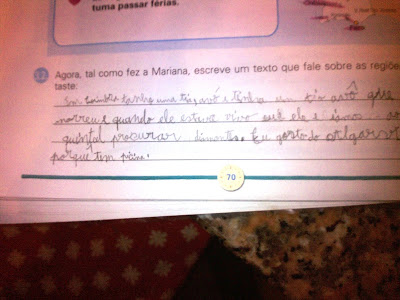 tuma passar férias.
12 Agora, tal como fez a Mariana, escreve um texto que fale sobre as regiõe
taste:
Eu também tenho uma e tinha um avô que
morreu e quando ele estava vivo eu ele e íamos ao
quintal procurar diamantes. Eu gosto do Algarve
porque tem piscina.
70